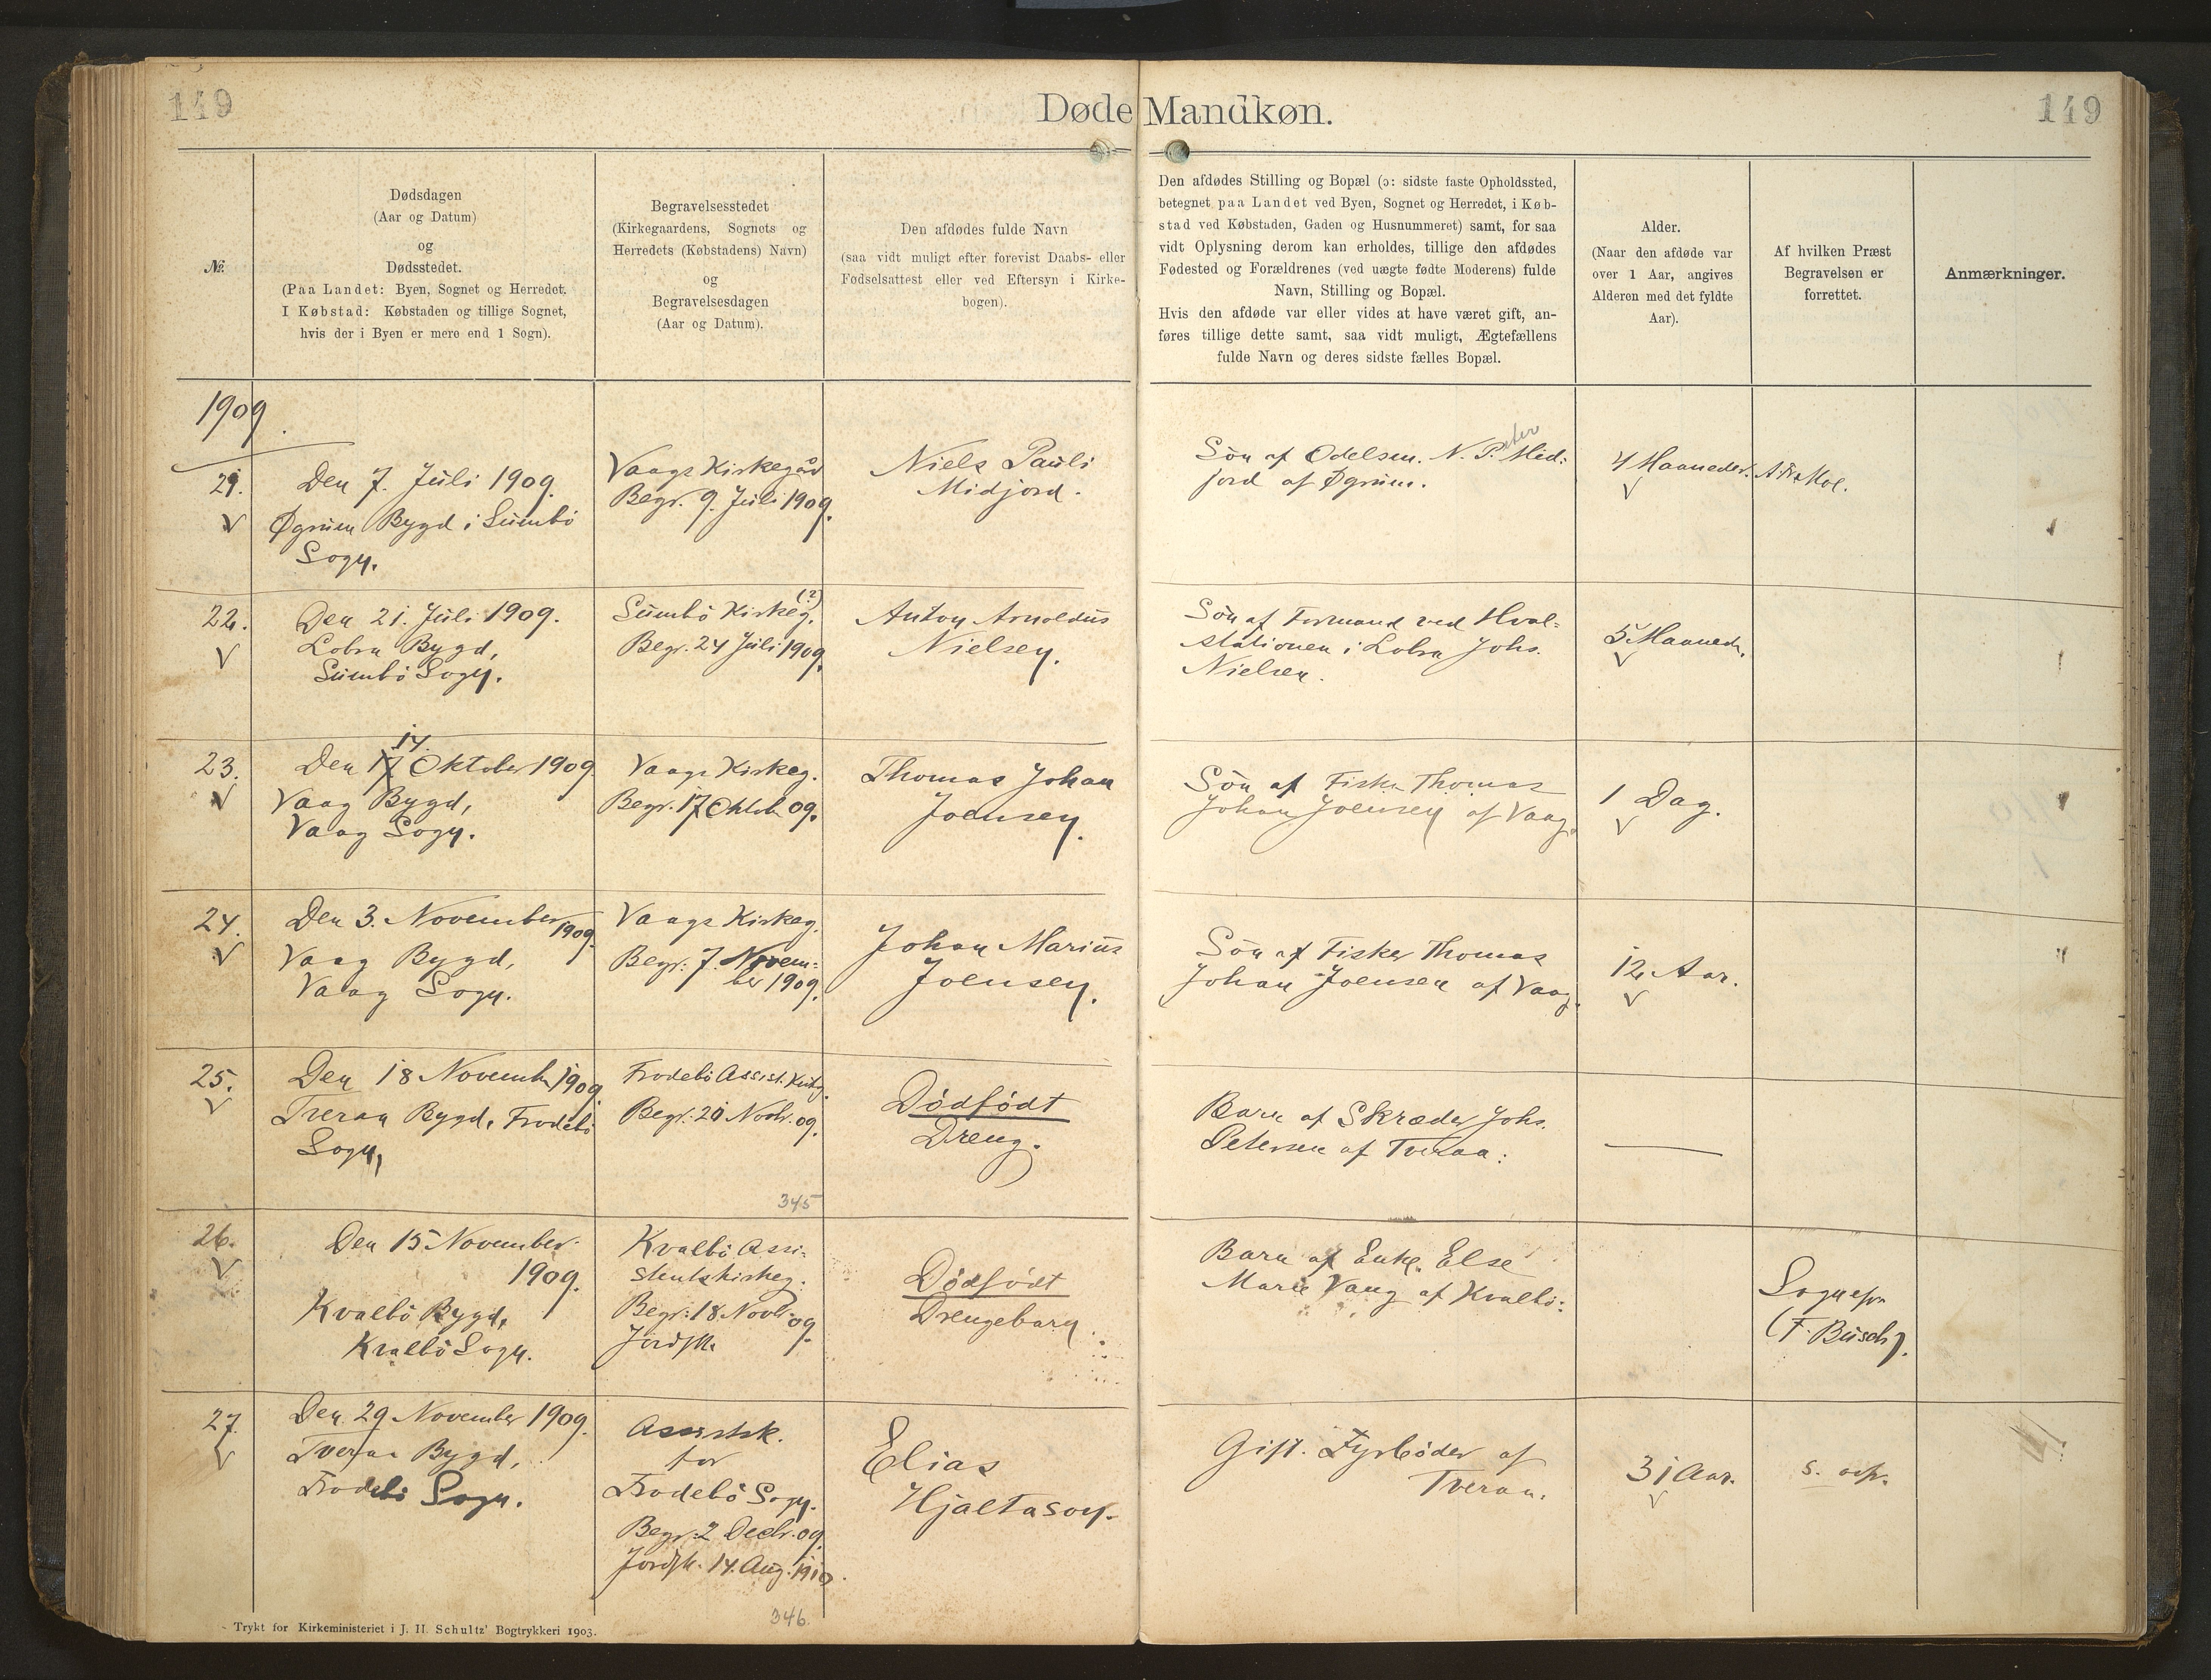 149
Døde Mandkøn.
149
№.
Dødsdagen
(Aar og Datum)
og
Dødsstedet.
(Paa Landet: Byen, Sognet og Herredet.
I Købstad: Købstaden og tillige Sognet,
hvis der i Byen er mere end 1 Sogn).
Begravelsesstedet
(Kirkegaardens, Sognets og
Herredets (Købstadens) Navn)
og
Begravelsesdagen
(Aar og Datum).
Den afdødes fulde Navn
(saa vidt muligt efter forevist Daabs- eller
Fødselsattest eller ved Eftersyn i Kirke-
bogen).
Den afdødes Stilling og Bopæl (ɔ: sidste faste Opholdssted,
betegnet paa Landet ved Byen, Sognet og Herredet, i Køb-
stad ved Købstaden, Gaden og Husnummeret) samt, for saa
vidt Oplysning derom kan erholdes, tillige den afdødes
Fødested og Forældrenes (ved uægte fødte Moderens) fulde
Navn, Stilling og Bopæl.
Hvis den afdøde var eller vides at have været gift, an-
føres tillige dette samt, saa vidt muligt, Ægtefællens
fulde Navn og deres sidste fælles Bopæl.
Alder.
(Naar den afdøde var
over 1 Aar, angives
Alderen med det fyldte
Aar).
Af hvilken Præst
Begravelsen er
forrettet.
Anmærkninger.
1909.
21.
Den 7. Juli 1909.
Øgrum Bygd i Sumbö
Sogn.
Vaags Kirkegård
Begr. 9. Juli 1909.
Niels Pauli
Midjord.
Sön af Odelsm. N. Peter Mid:
jord af Øgrum.
4 Maaneder.
22.
Den 21. Juli 1909.
Lobra Bygd,
Sumbö Sogn.
Sumbö Kirkeg. (?)
Begr. 24 Juli 1909.
Anton Arnoldus
Nielsen.
Sön af Formand ved Hval=
stationen i Lobra Johs.
Nielsen.
5 Maaneder.
23.
Den 17 14. Oktober 1909.
Vaag Bygd,
Vaag Sogn.
Vaags Kirkeg.
Begr. 17 Oktob 09.
Thomas Johan
Joensen.
Sön af Fisker Thomas
Johan Joensen af Vaag.
1 Dag.
24.
Den 3. November 1909.
Vaag Bygd,
Vaag Sogn.
Vaags Kirkeg.
Begr: 7. Novem:
ber 1909.
Johan Marius
Joensen.
Sön af Fisker Thomas
Johan Joensen af Vaag.
12 Aar.
25.
Den 18 November 1909.
Tveraa Bygd, Frodebö
Sogn,
Frodebö Assist. Kirkg.
Begr: 20 Novbr. 09.
Dödfödt
Dreng.
Barn af Skræder Johs.
Petersen af Tveraa:
345
26.
Den 15 November
1909.
Kvalbö Bygd,
Kvalbö Sogn.
Kvalbö Assi-
stentskirkeg.
Begr: 18 Novbr. 09.
Jordfk.
Dödfödt
Drengebarn.
Barn af Enke Else
Marie Vang af Kvalbö:
Sognepr.
(F. Busch).
27.
Den 29 November 1909.
Tveraa Bygd,
Frodebö Sogn.
Assistsk.
for
Frodebö Sogn.
Begr: 2 Decbr. 09.
Jordfk. 14. Aug. 1910.
Elias
Hjaltason.
Gift. Fyrböder af
Tveraa.
31 Aar.
346.
Trykt for Kirkeministeriet i J. H. Schultz' Bogtrykkeri 1903.